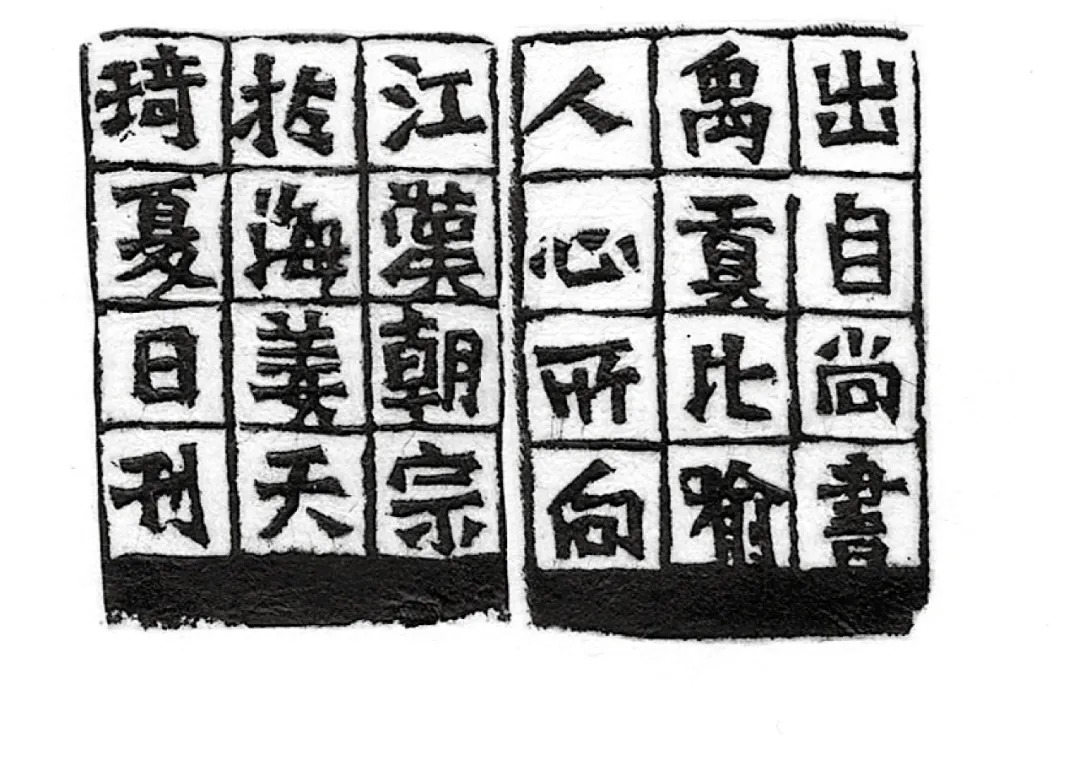 出自尚書
禹貢比喻
人心所向
江漢朝宗
於海姜天
琦夏日刊